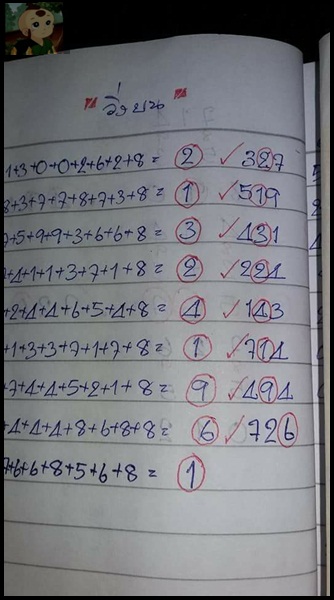 " วิ่งบน "
1+3+0+0+2+6+2+8 = 2 ✓ 327
8+3+7+7+8+7+3+8 = 1 ✓ 519
7+5+9+9+3+6+6+8 = 3 ✓ 431
+4+1+1+3+7+1+8 = 2 ✓ 224
+2+4+4+6+5+4+8 = 4 ✓ 143
+1+3+3+7+1+7+8 = 1 ✓ 714
7+4+4+5+2+1+8 = 9 ✓ 494
+4+4+4+8+6+8+8 = 6 ✓ 726
7+6+6+8+5+6+8 = 1